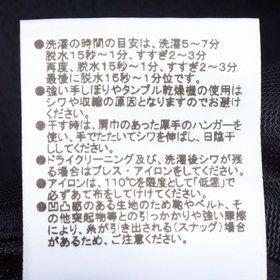 ●洗濯の時間の目安は、洗濯5～7分
脱水15秒～1分、すすぎ2～3分
再度、脱水15秒～1分、すすぎ2～3分
最後に脱水15秒～1分位です。
●強い手しぼりやタンブル乾燥機の使用は
シワや収縮の原因となりますのでお避け
ください。
●干す時は、肩巾のあった厚手のハンガーを
使い、手でたたいてシワを伸ばし、日陰干
してください。
●ドライクリーニング及び、洗濯後シワが残
る場合はプレス・アイロンをしてください。
●アイロンは、110℃を限度として「低温」で
必ずあて布を使用してください。
●凹凸感のある生地のため鞄やベルト、そ
の他突起物等との引っかかりや強い摩擦
により、糸が引き出される(スナッグ)場合
があるため、ご注意ください。